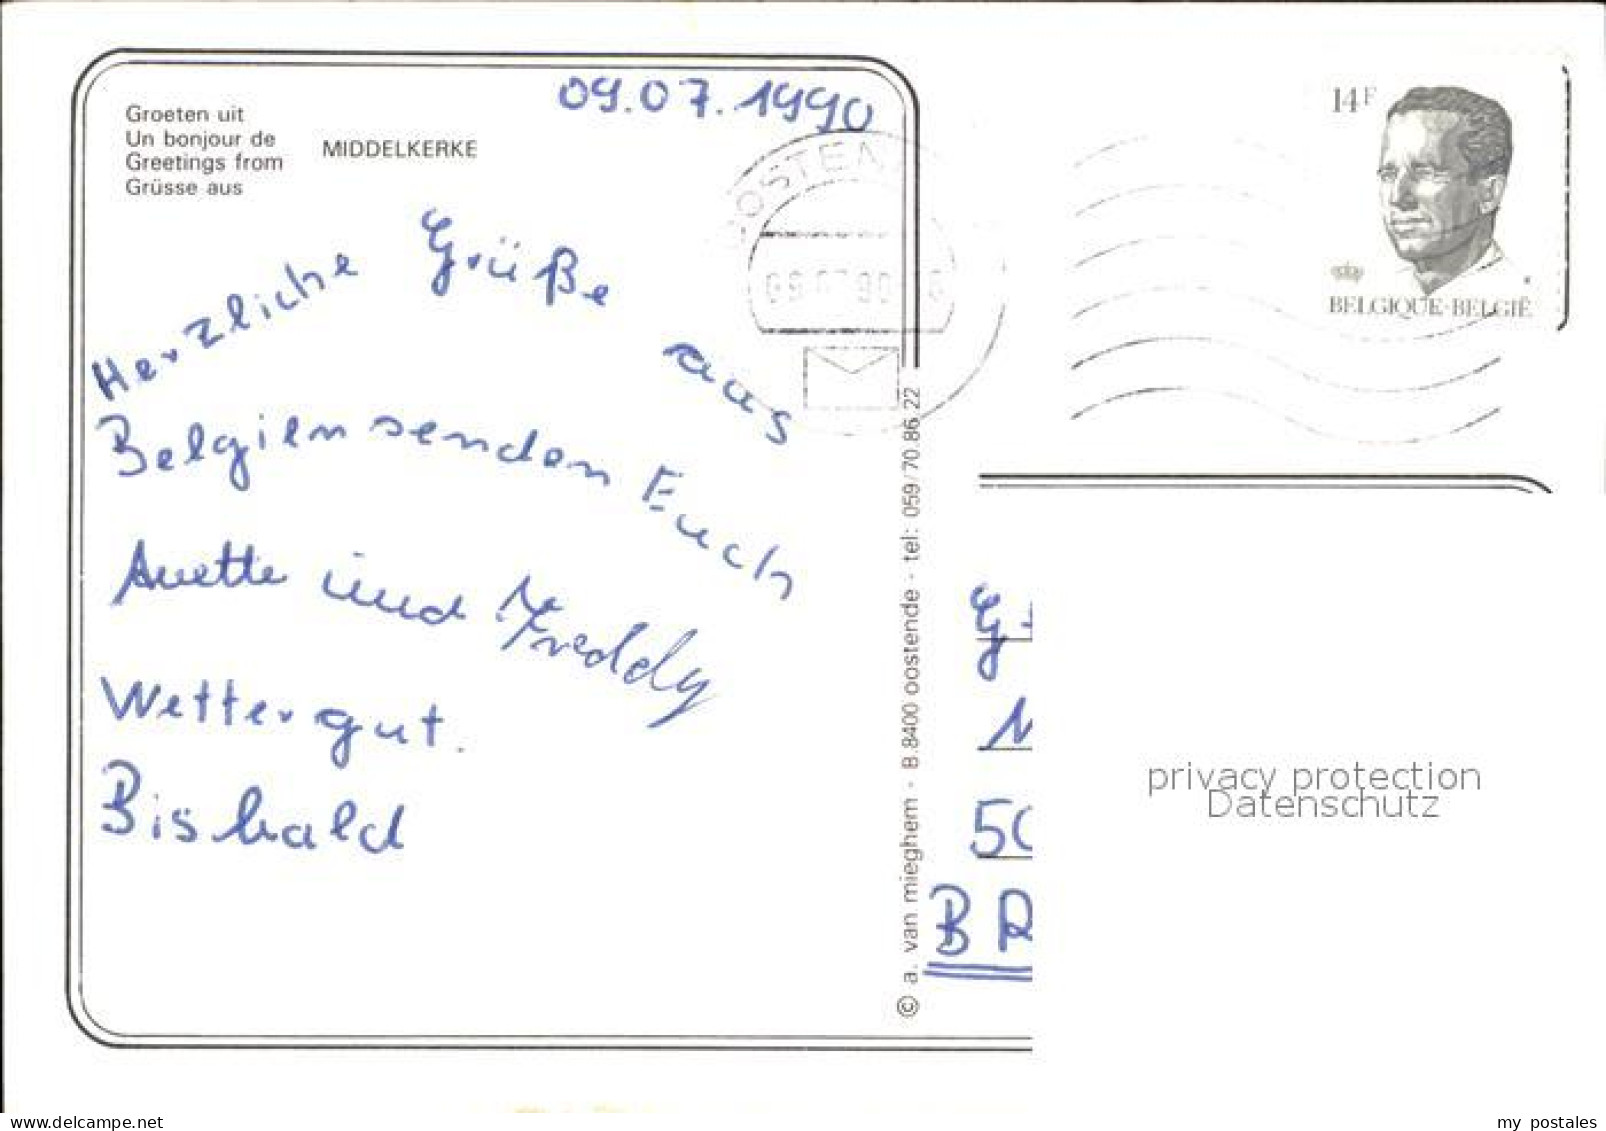 Groeten uit
Un bonjour de
Greetings from
Grüsse aus
MIDDELKERKE
09.07.1990
OOSTEN
14F
BELGIQUE·BELGIË
Herzliche Grüße aus
Belgien senden Euch
Anette und Freddy
Wetter gut.
Bis bald
© a. van mieghem - B.8400 oostende - tel: 059/70.86.22
50
B R
privacy protection
Datenschutz
www.delcampe.net
my_postales